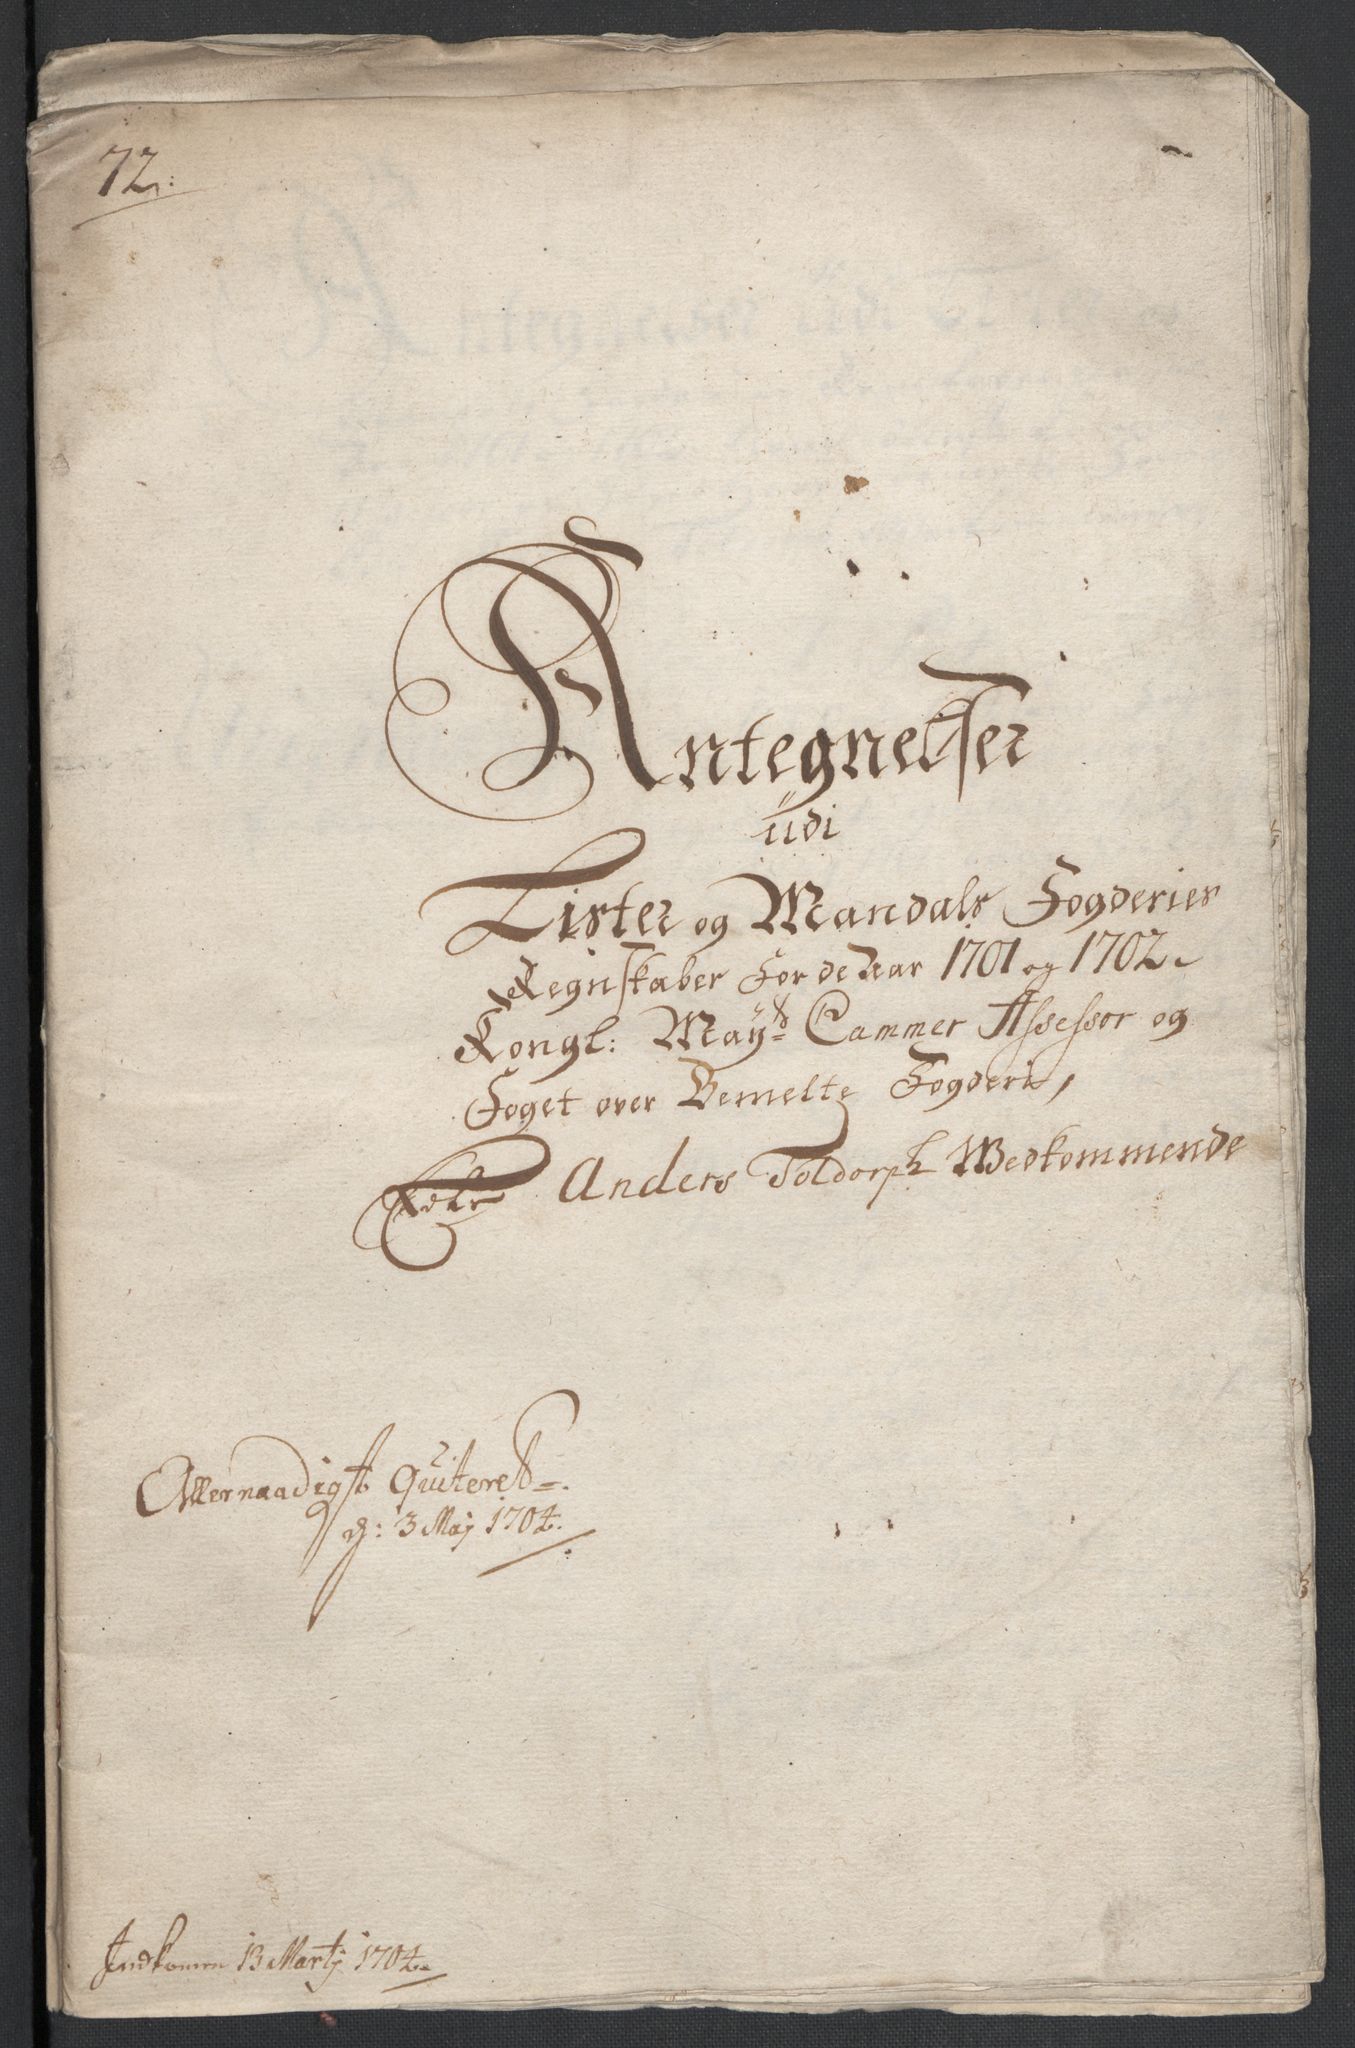 72.
Antegnelser
udi
Lister og Mandals Fogderies
Regnskaber For de Aar 1701 og 1702.
Kongl: Mayts Cammer Assessor og
Foget over Bemelte Fogderi,
Edle Anders Toldorph Vedkommende
Allernaadigst Quiteret
d: 3 Maj 1704.
Indkomen 13 Martj 1704.